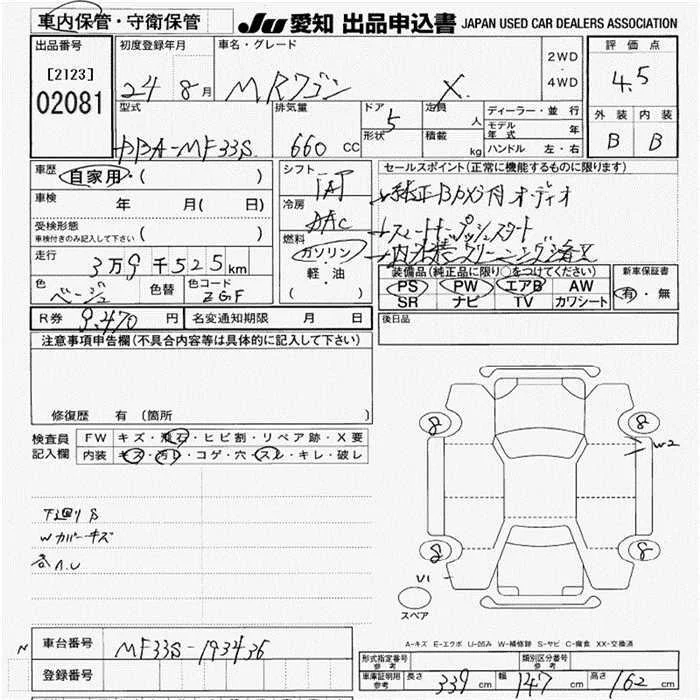 車内保管・守衛保管
JU 愛知 出品申込書 JAPAN USED CAR DEALERS ASSOCIATION
出品番号 初度登録年月 車名・グレード 評価点
[2123] 24 8月 MRワゴン X. 2WD・4WD 4.5
02081 型式 排気量 ドア 5 定員 人 ディーラー・並行 外装 内装
DBA-MF33S 660 CC 形状 積載 kg モデル年式 年 B B
ハンドル 左・右
車歴 自家用・( ) シフト IAT セールスポイント(正常に機能するものに限ります)
車検 年 月( 日) 冷房 AAC
受検形態 車検付きのみ記入して下さい ( ) スマートキープッシュスタート
燃料 ガソリン・軽油・( )
走行 3万9千525km 装備品(純正品に限り○をつけてください) 新車保証書
色 ベージュ 色替 色コード ZGF PS PW エアB AW 有・無
SR ナビ TV カワシート
R券 9,470 円 名変通知期限 月 日 後日品
注意事項申告欄(不具合内容等は具体的に記入して下さい)
修復歴 有(箇所 )
検査員記入欄 FW キズ・飛石・ヒビ割・リペア跡・X要
内装 キズ・汚レ・コゲ・穴・スレ・キレ・破レ
8 8
W2
下廻りS
Wカバーキズ
各A.U
8 8
U1
スペア
A-キズ E-エクボ U-凹み W-補修跡 S-サビ C-腐食 XX-交換済
車台番号 MF33S-193436
登録番号
形式指定番号 参考 類別区分番号 参考
車庫証明用 参考 長さ 339 cm 幅 147 cm 高さ 162 cm